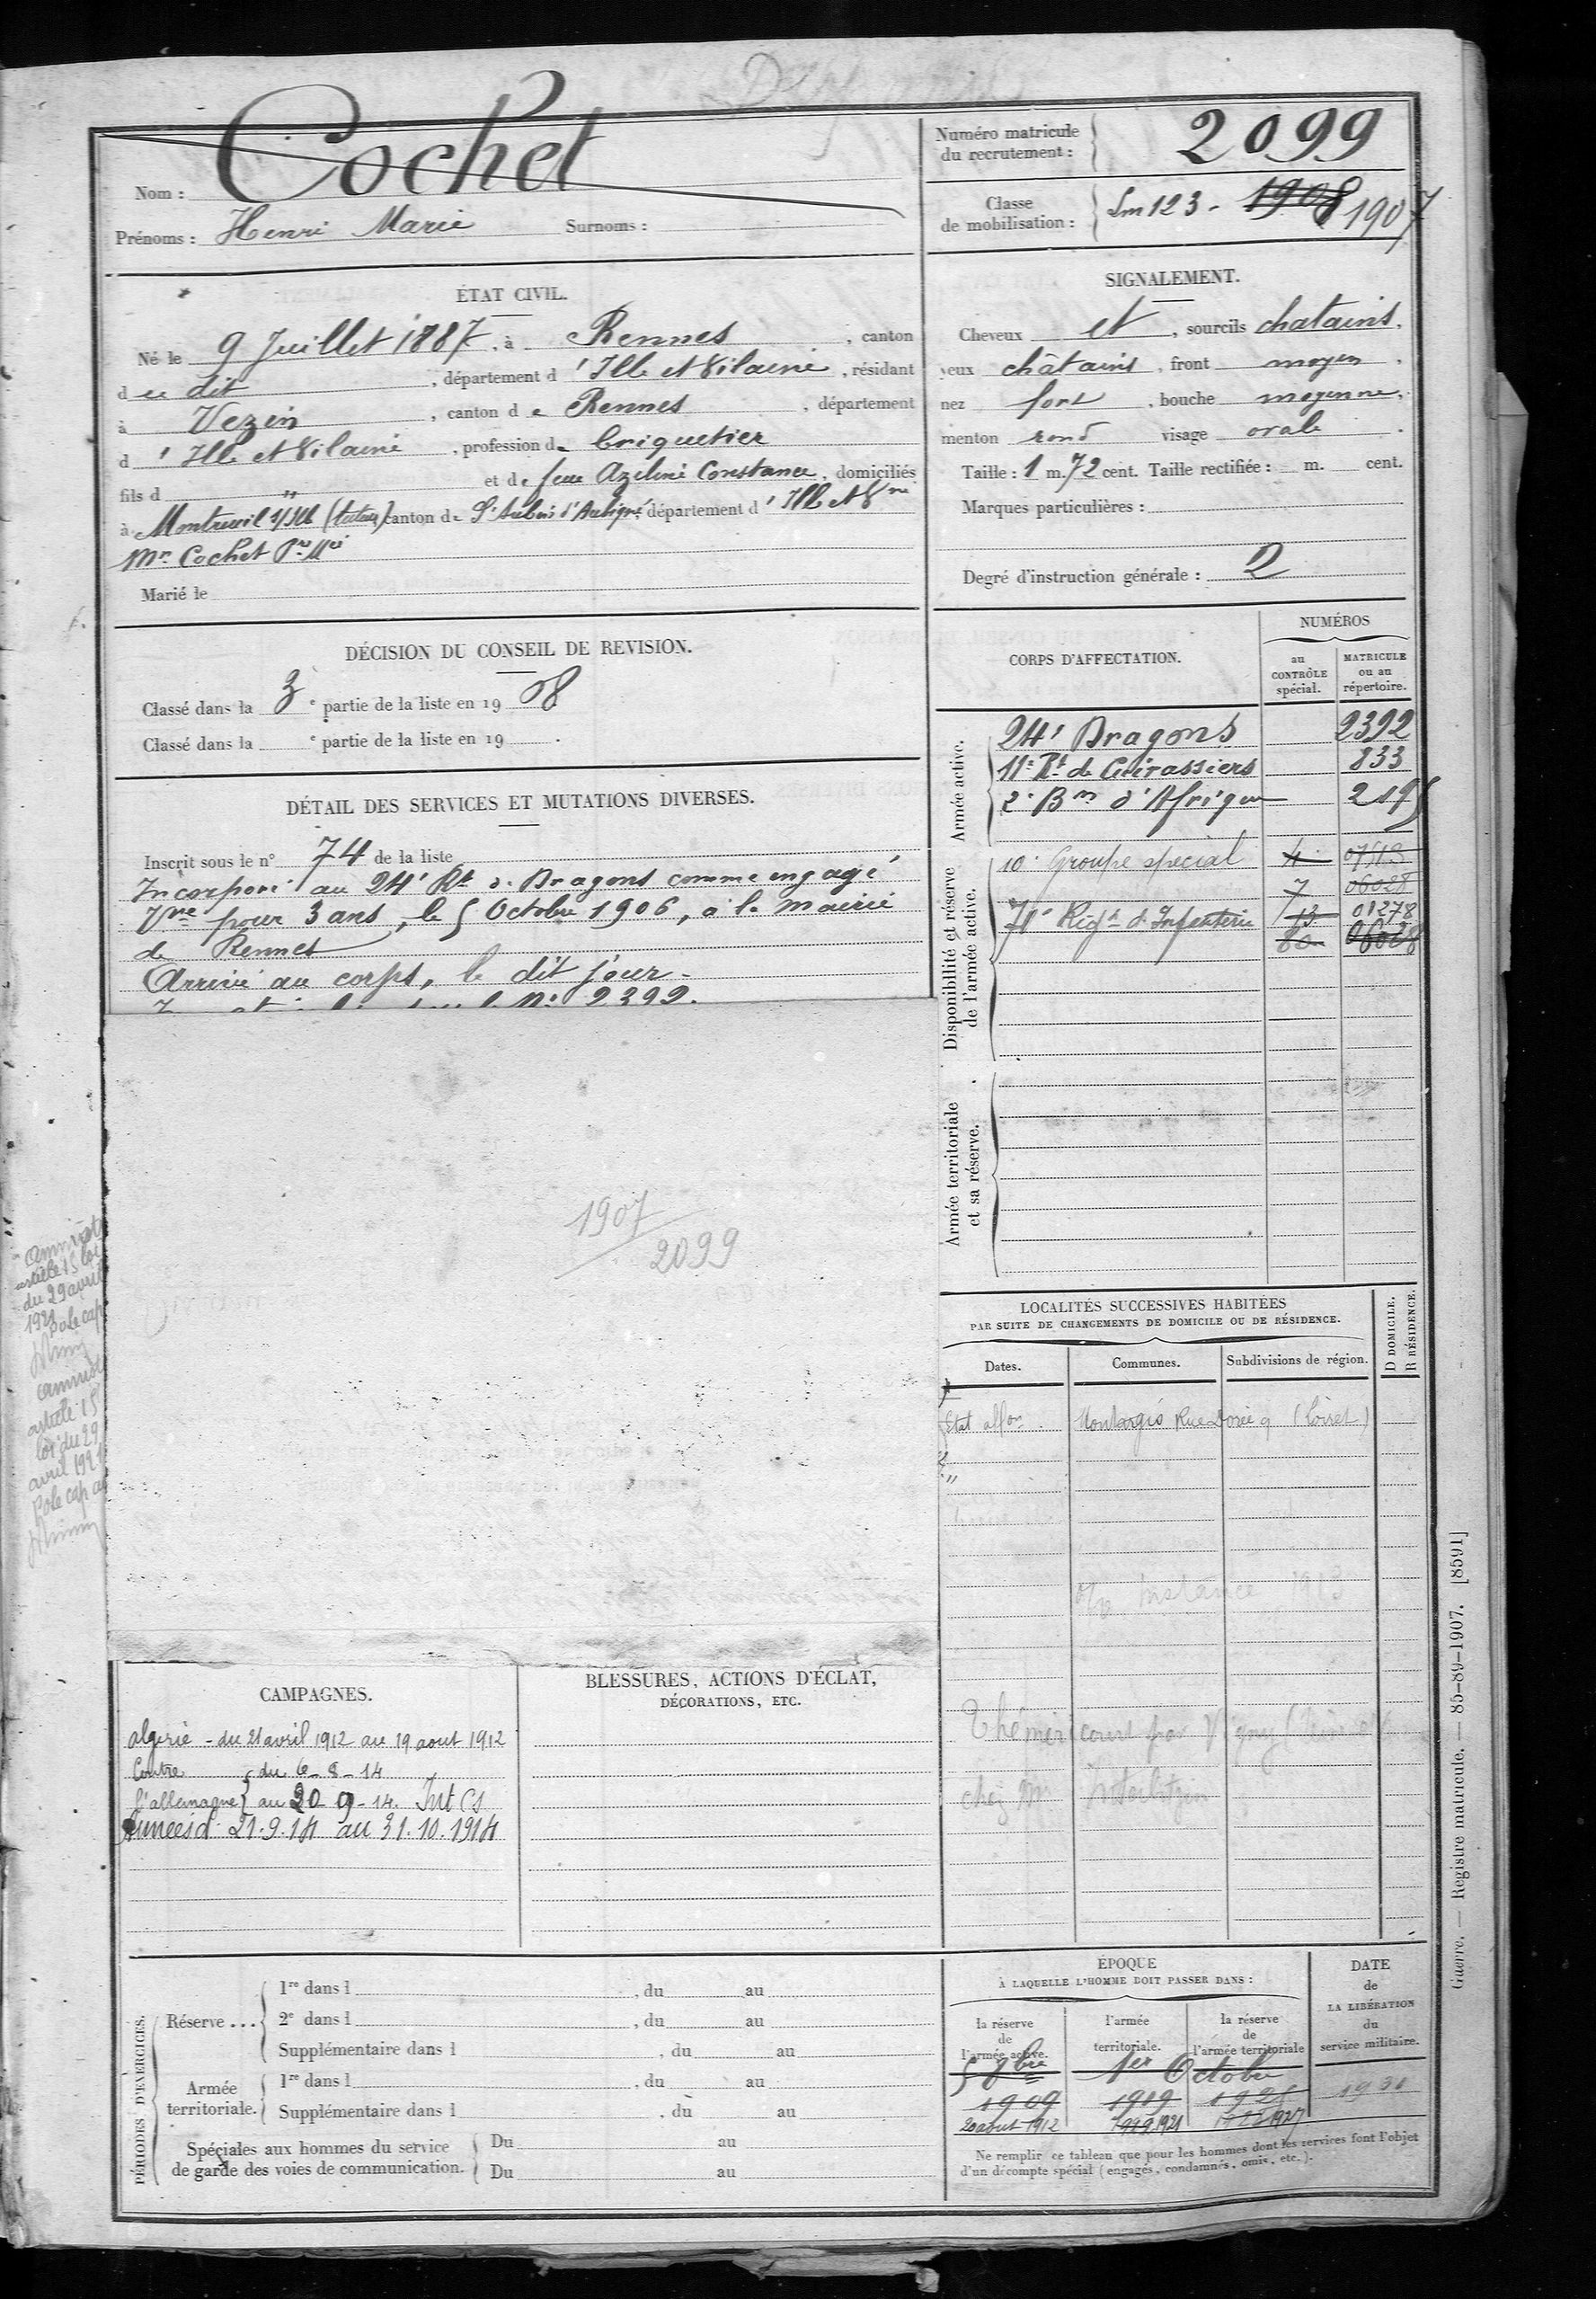 Cochet
Nom :
Prénoms : Henri Marie Surnoms :
Numéro matricule
du recrutement : 2099
Classe
de mobilisation : Lm 123 - 1908 1907
ÉTAT CIVIL.
Né le 9 Juillet 1887, à Rennes, canton
d ce dit, département d 'Ille et Vilaine, résidant
à Vezin, canton de Rennes, département
d 'Ille et Vilaine, profession de briquetier
fils d " et de feue Azeline Constance, domiciliés
à Montreuil s/Ille (tuteur) canton de St Aubin d'Aubigné département d' Ille et Vne
Mr Cochet Pre Mie
Marié le
SIGNALEMENT.
Cheveux et, sourcils chatains.
yeux châtains, front moyen,
nez fort, bouche moyenne,
menton rond visage ovale.
Taille : 1 m. 72 cent. Taille rectifiée : m. cent.
Marques particulières :
Degré d'instruction générale : 2
DÉCISION DU CONSEIL DE REVISION.
Classé dans la 3e partie de la liste en 1908
Classé dans la e partie de la liste en 19 .
DÉTAIL DES SERVICES ET MUTATIONS DIVERSES.
Inscrit sous le n° 74 de la liste
Incorporé au 24e Rt de Dragons comme engagé
Vre pour 3 ans, le 5 Octobre 1906, à la mairie
de Rennes
Arrivé au corps, le dit jour.
No 2392.
1907
2099
CORPS D'AFFECTATION.
NUMÉROS
au
CONTRÔLE
spécial.
MATRICULE
ou au
répertoire.
Armée active.
24e Dragons 2392
11e Rt de Cuirassiers 833
2e Bon d'Afrique 2195
Disponibilité et réserve
de l'armée active.
10e Groupe spécial 4 07513
7 06028
71e Régt d'Infanterie 13 01278
80 06028
Armée territoriale
et sa réserve.
amnistié
article 15 loi
du 29 avril
1921
Po le cap
amnistié
article 15
loi du 29
avril 1921
Po le cap
LOCALITÉS SUCCESSIVES HABITÉES
PAR SUITE DE CHANGEMENTS DE DOMICILE OU DE RÉSIDENCE.
Dates.
Communes.
Subdivisions de région.
D DOMICILE.
R RÉSIDENCE.
Etat affon. Montargis Rue Dorée 9 (Loiret)
instance 1913
Théméricourt par Vigny
chez Mr
CAMPAGNES.
Algérie - du 21 avril 1912 au 19 aout 1912
Contre du 6-8-14
l'allemagne au 20 9-14. Int Cs
Armées d 21.9.14 au 31.10.1914
BLESSURES, ACTIONS D'ÉCLAT,
DÉCORATIONS, ETC.
PÉRIODES D'EXERCICES.
Réserve ...
1re dans l , du au
2e dans l , du au
Supplémentaire dans l , du au
Armée
territoriale.
1re dans l , du au
Supplémentaire dans l , du au
Spéciales aux hommes du service
de garde des voies de communication.
Du au
Du au
ÉPOQUE
À LAQUELLE L'HOMME DOIT PASSER DANS :
la réserve
de
l'armée active.
l'armée
territoriale.
la réserve
de
l'armée territoriale
DATE
de
LA LIBÉRATION
du
service militaire.
5 8bre 1er Octobre
1909 1919 1925 1931
20 aout 1912 1921 1927
Ne remplir ce tableau que pour les hommes dont les services font l'objet
d'un décompte spécial (engagés, condamnés, omis, etc.).
Guerre. — Registre matricule. — 85-89-1907. [8591]